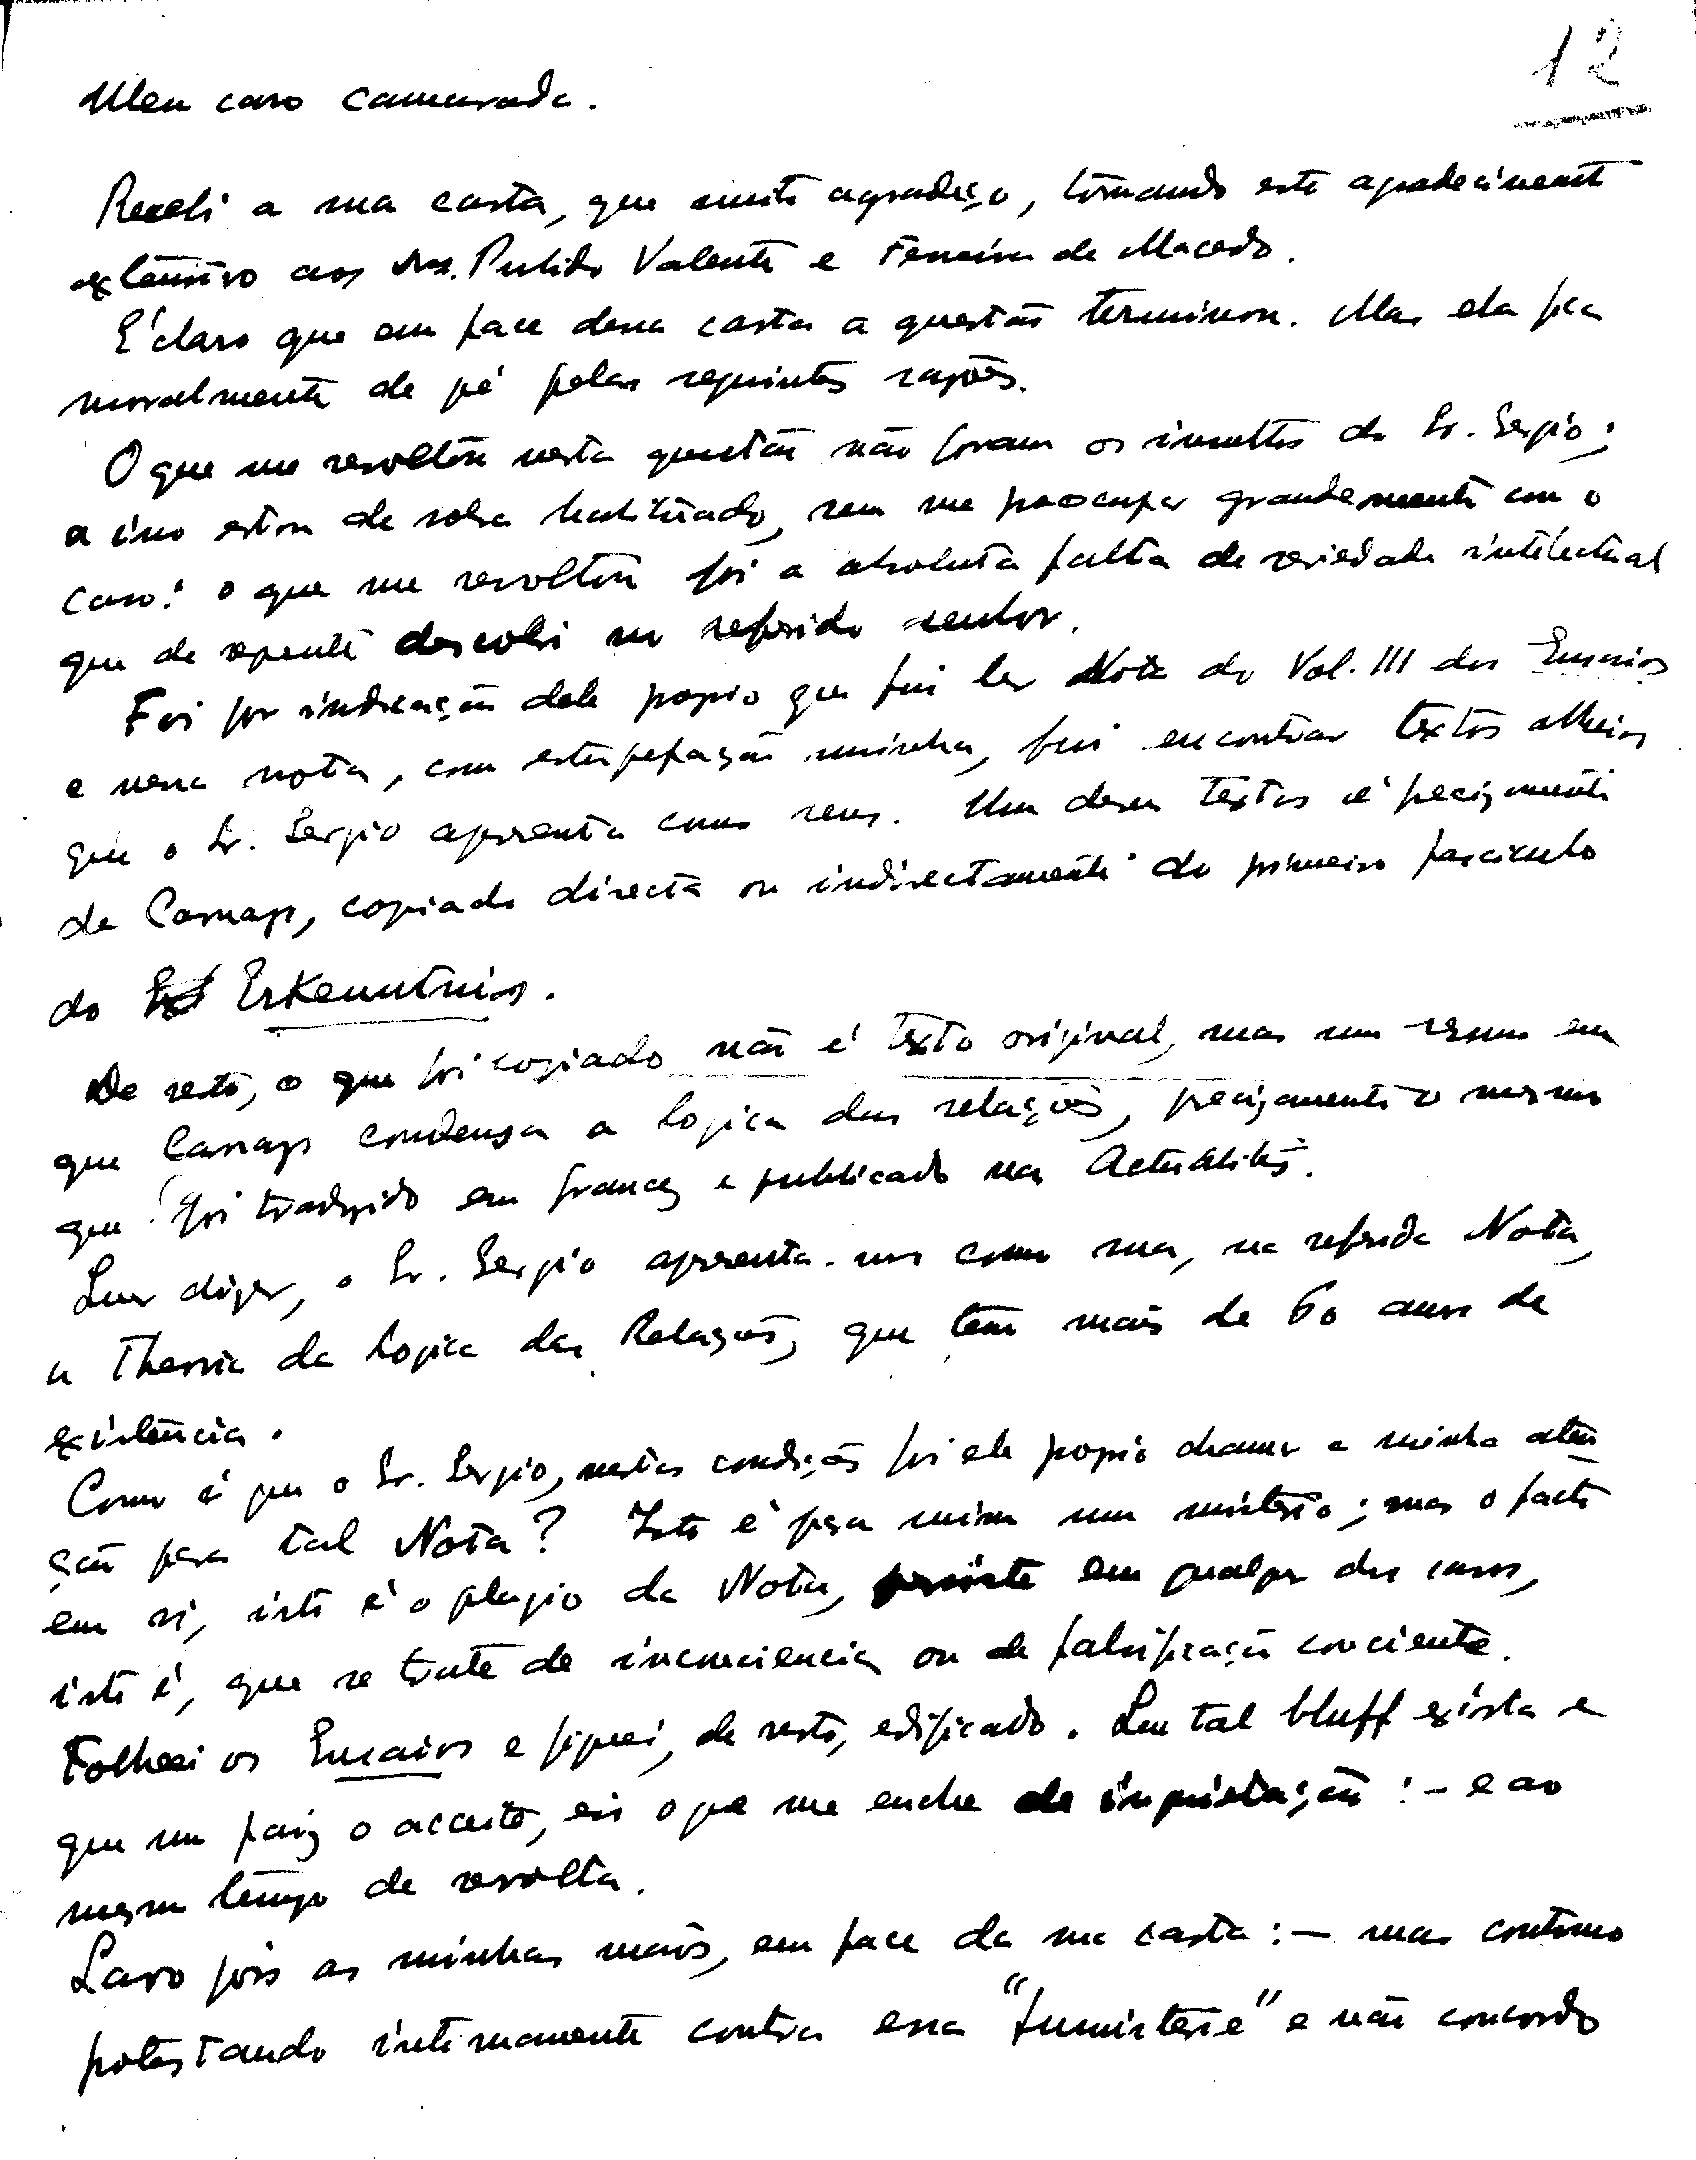 12
Meu caro camarada.
Recebi a sua carta, que muito agradeço, tornando este agradecimento
extensivo aos Drs. Pulido Valente e Ferreira de Macedo.
É claro que em face dessa carta a questão terminou. Mas ela fica
moralmente de pé pelas seguintes razões.
O que me revoltou nesta questão não foram os insultos do Sr. Sergio;
a isso estou de sobra habituado, sem me preocupar grandemente com o
caso: o que me revoltou foi a absoluta falta de seriedade intelectual
que de repente descobri no referido senhor.
Foi por indicação dele proprio que fui ler Nota do Vol. III dos Ensaios
e nessa nota, com estupefação minha, fui encontrar textos alheios
que o Sr. Sergio apresenta como seus. Um desses textos é precizamente
de Carnap, copiado directa ou indirectamente do primeiro fasciculo
do Erkenntnis.
De resto, o que foi copiado não é texto original, mas um resumo em
que Carnap condensa a logica das relações, precizamente o mesmo
que foi traduzido em francez e publicado nas Actualités.
Quer dizer, o Sr. Sergio apresenta-nos como sua, na referida Nota,
a Theoria da Logica das Relações, que tem mais de 60 anos de
existencia.
Como é que o Sr. Sergio, nestas condições foi ele proprio chamar a minha aten
ção para tal Nota? Isto é para mim um misterio; mas o facto
em si, isto é o plagio da Nota, persiste em qualquer dos casos,
isto é, que se trate de inconsciencia ou de falsificação consciente.
Folheei os Ensaios e fiquei, de resto, edificado. Que tal bluff exista e
que um paiz o acceite, eis o que me enche de inquietação: - e ao
mesmo tempo de revolta.
Lavo pois as minhas mãos, em face da sua carta: - mas continuo
protestando intimamente contra essa "fumisterie" e não concordo